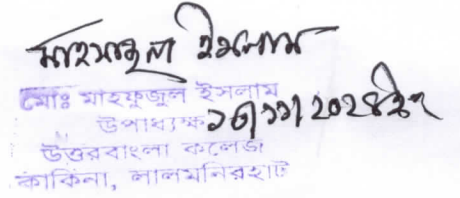 মাহফুজুল ইসলাম
মোঃ মাহফুজুল ইসলাম
উপাধ্যক্ষ
উত্তরবাংলা কলেজ
কাকিনা, লালমনিরহাট